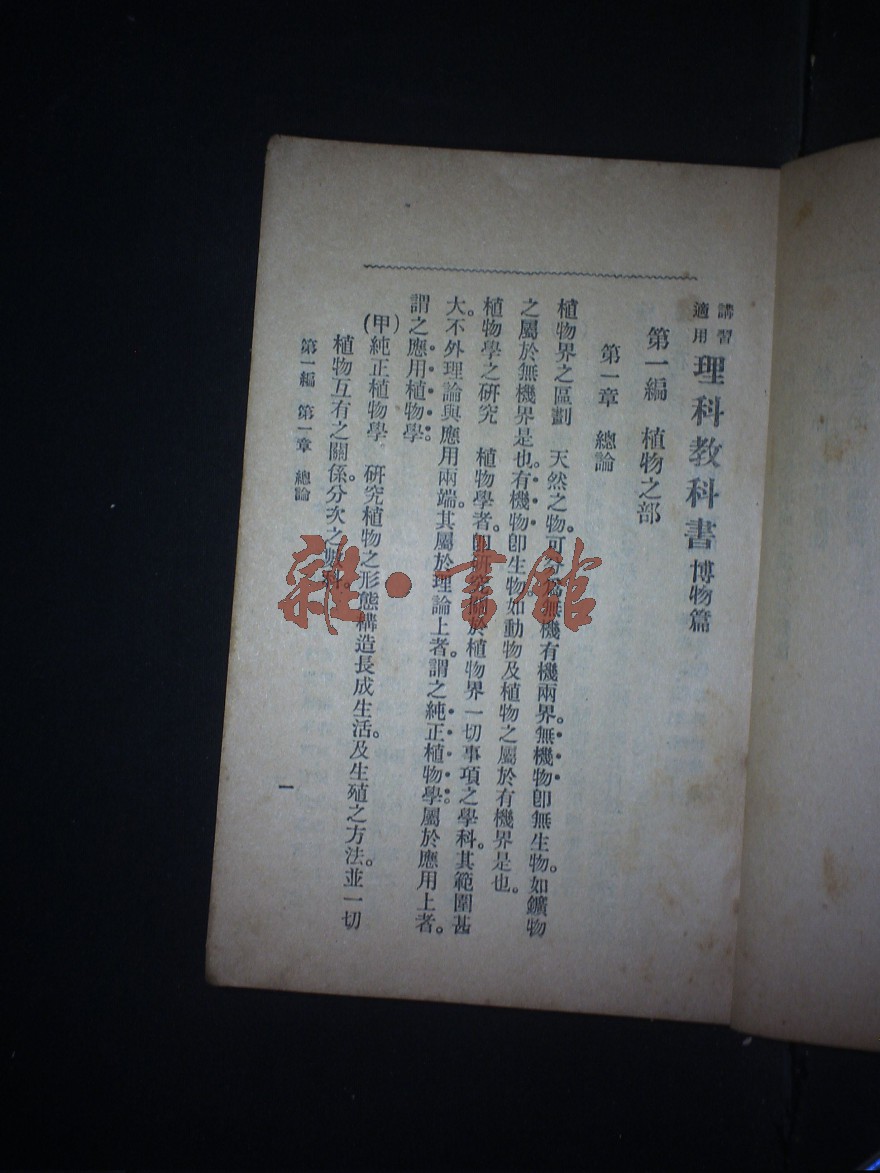 講習
適用
理科教科書 博物篇
第一編 植物之部
第一章 總論
植物界之區劃 天然之物。可分爲無機有機兩界。無機物卽無生物。如鑛物
之屬於無機界是也。有機物卽生物如動物及植物之屬於有機界是也。
植物學之研究 植物學者。卽研究關於植物界一切事項之學科。其範圍甚
大。不外理論與應用兩端。其屬於理論上者。謂之純正植物學。屬於應用上者。
謂之應用植物學。
(甲)純正植物學 研究植物之形態構造長成生活。及生殖之方法。並一切
植物互有之關係。分次之數科。
第一編 第一章 總論
一
雜·書館